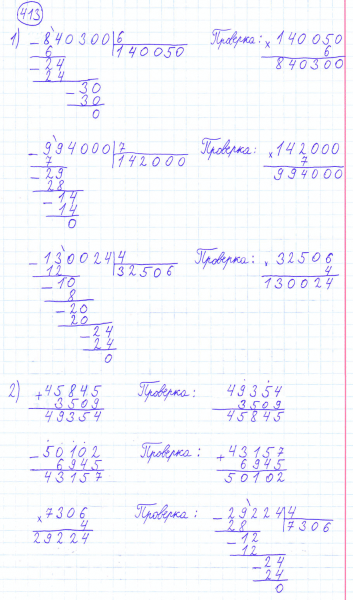 413
1) - 840300 | 6 Проверка: × 140050
6 140050 6
- 24 840300
24
- 30
30
0
- 994000 | 7 Проверка: × 142000
7 142000 7
- 29 994000
28
- 14
14
0
- 130024 | 4 Проверка: × 32506
12 32506 4
- 10 130024
8
- 20
20
- 24
24
0
2) + 45845 Проверка: 49354
3509 3509
49354 45845
- 50102 Проверка: + 43157
6945 6945
43157 50102
× 7306 Проверка: - 29224 | 4
4 28 7306
29224 - 12
12
- 24
24
0